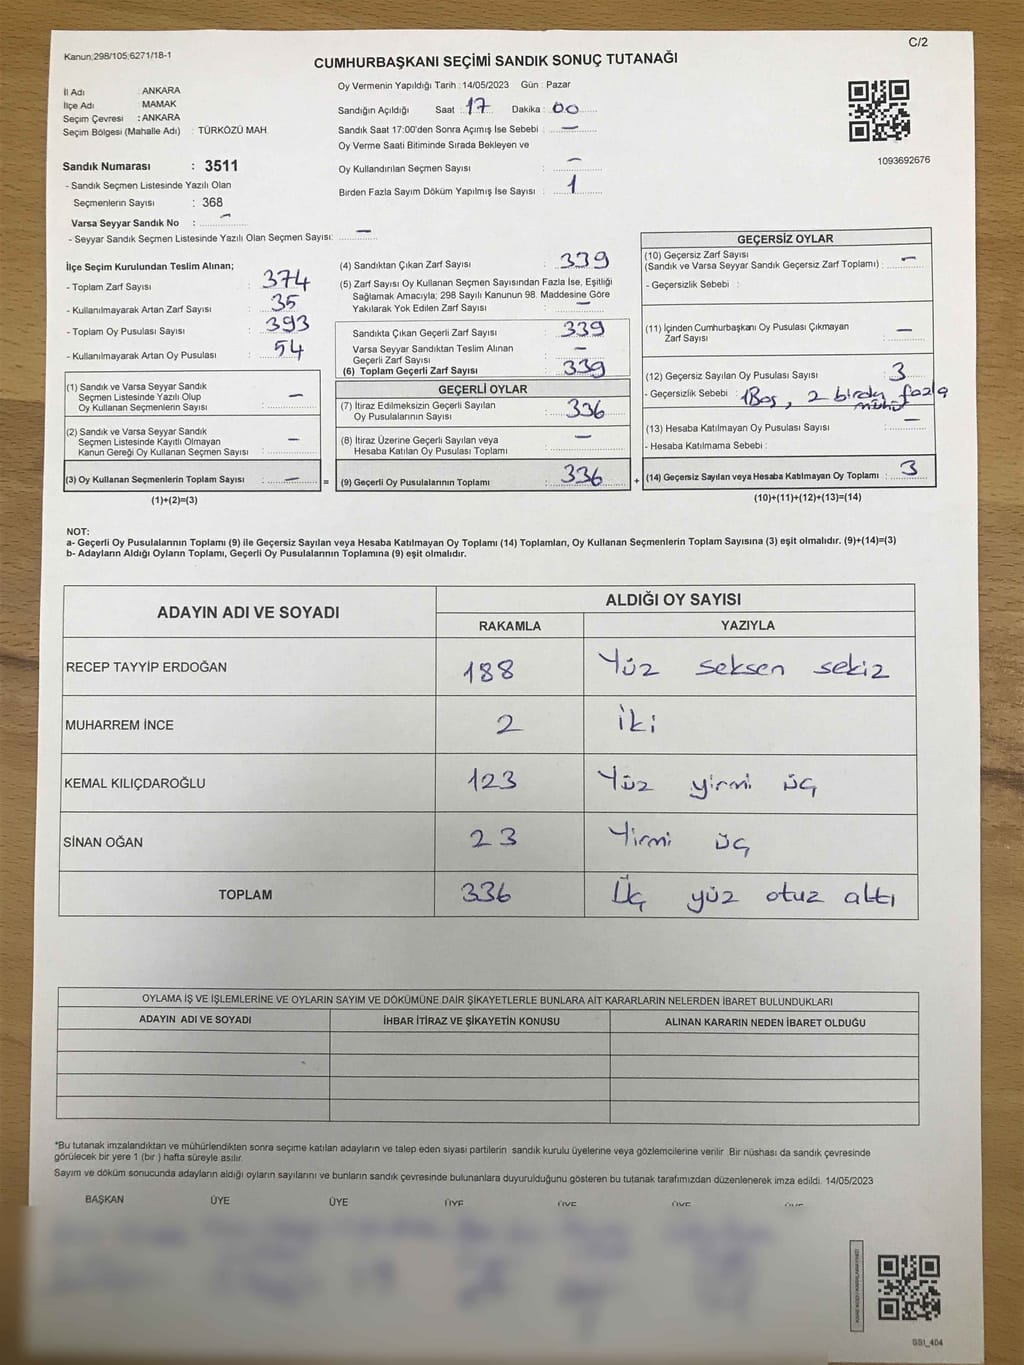 Kanun;298/105;6271/18-1
C/2
CUMHURBAŞKANI SEÇİMİ SANDIK SONUÇ TUTANAĞI
İl Adı : ANKARA
İlçe Adı : MAMAK
Seçim Çevresi : ANKARA
Seçim Bölgesi (Mahalle Adı) : TÜRKÖZÜ MAH
Oy Vermenin Yapıldığı Tarih : 14/05/2023 Gün : Pazar
Sandığın Açıldığı Saat : 17 Dakika : 00
Sandık Saat 17:00'den Sonra Açımış İse Sebebi : —
Oy Verme Saati Bitiminde Sırada Bekleyen ve
Oy Kullandırılan Seçmen Sayısı : —
Birden Fazla Sayım Döküm Yapılmış İse Sayısı : 1
1093692676
Sandık Numarası : 3511
- Sandık Seçmen Listesinde Yazılı Olan
Seçmenlerin Sayısı : 368
Varsa Seyyar Sandık No : —
- Seyyar Sandık Seçmen Listesinde Yazılı Olan Seçmen Sayısı: —
İlçe Seçim Kurulundan Teslim Alınan;
- Toplam Zarf Sayısı : 374
- Kullanılmayarak Artan Zarf Sayısı : 35
- Toplam Oy Pusulası Sayısı : 393
- Kullanılmayarak Artan Oy Pusulası : 54
(1) Sandık ve Varsa Seyyar Sandık
Seçmen Listesinde Yazılı Olup
Oy Kullanan Seçmenlerin Sayısı : —
(2) Sandık ve Varsa Seyyar Sandık
Seçmen Listesinde Kayıtlı Olmayan
Kanun Gereği Oy Kullanan Seçmen Sayısı : —
(3) Oy Kullanan Seçmenlerin Toplam Sayısı : — =
(1)+(2)=(3)
(4) Sandıktan Çıkan Zarf Sayısı : 339
(5) Zarf Sayısı Oy Kullanan Seçmen Sayısından Fazla İse, Eşitliği
Sağlamak Amacıyla; 298 Sayılı Kanunun 98. Maddesine Göre
Yakılarak Yok Edilen Zarf Sayısı : —
Sandıkta Çıkan Geçerli Zarf Sayısı : 339
Varsa Seyyar Sandıktan Teslim Alınan
Geçerli Zarf Sayısı : —
(6) Toplam Geçerli Zarf Sayısı : 339
GEÇERLİ OYLAR
(7) İtiraz Edilmeksizin Geçerli Sayılan
Oy Pusulalarının Sayısı : 336
(8) İtiraz Üzerine Geçerli Sayılan veya
Hesaba Katılan Oy Pusulası Toplamı : —
(9) Geçerli Oy Pusulalarının Toplamı : 336 +
GEÇERSİZ OYLAR
(10) Geçersiz Zarf Sayısı
(Sandık ve Varsa Seyyar Sandık Geçersiz Zarf Toplamı) : —
- Geçersizlik Sebebi :
(11) İçinden Cumhurbaşkanı Oy Pusulası Çıkmayan
Zarf Sayısı : —
(12) Geçersiz Sayılan Oy Pusulası Sayısı : 3
- Geçersizlik Sebebi : 1 Boş, 2 birden fazla
mühür
(13) Hesaba Katılmayan Oy Pusulası Sayısı : —
- Hesaba Katılmama Sebebi :
(14) Geçersiz Sayılan veya Hesaba Katılmayan Oy Toplamı : 3
(10)+(11)+(12)+(13)=(14)
NOT:
a- Geçerli Oy Pusulalarının Toplamı (9) ile Geçersiz Sayılan veya Hesaba Katılmayan Oy Toplamı (14) Toplamları, Oy Kullanan Seçmenlerin Toplam Sayısına (3) eşit olmalıdır. (9)+(14)=(3)
b- Adayların Aldığı Oyların Toplamı, Geçerli Oy Pusulalarının Toplamına (9) eşit olmalıdır.
ADAYIN ADI VE SOYADI ALDIĞI OY SAYISI
RAKAMLA YAZIYLA
RECEP TAYYİP ERDOĞAN 188 Yüz seksen sekiz
MUHARREM İNCE 2 iki
KEMAL KILIÇDAROĞLU 123 Yüz yirmi üç
SİNAN OĞAN 23 Yirmi üç
TOPLAM 336 Üç yüz otuz altı
OYLAMA İŞ VE İŞLEMLERİNE VE OYLARIN SAYIM VE DÖKÜMÜNE DAİR ŞİKAYETLERLE BUNLARA AİT KARARLARIN NELERDEN İBARET BULUNDUKLARI
ADAYIN ADI VE SOYADI İHBAR İTİRAZ VE ŞİKAYETİN KONUSU ALINAN KARARIN NEDEN İBARET OLDUĞU
*Bu tutanak imzalandıktan ve mühürlendikten sonra seçime katılan adayların ve talep eden siyasi partilerin sandık kurulu üyelerine veya gözlemcilerine verilir. Bir nüshası da sandık çevresinde
görülecek bir yere 1 (bir ) hafta süreyle asılır.
Sayım ve döküm sonucunda adayların aldığı oyların sayılarını ve bunların sandık çevresinde bulunanlara duyurulduğunu gösteren bu tutanak tarafımızdan düzenlenerek imza edildi. 14/05/2023
BAŞKAN ÜYE ÜYE ÜYE ÜYE ÜYE ÜYE